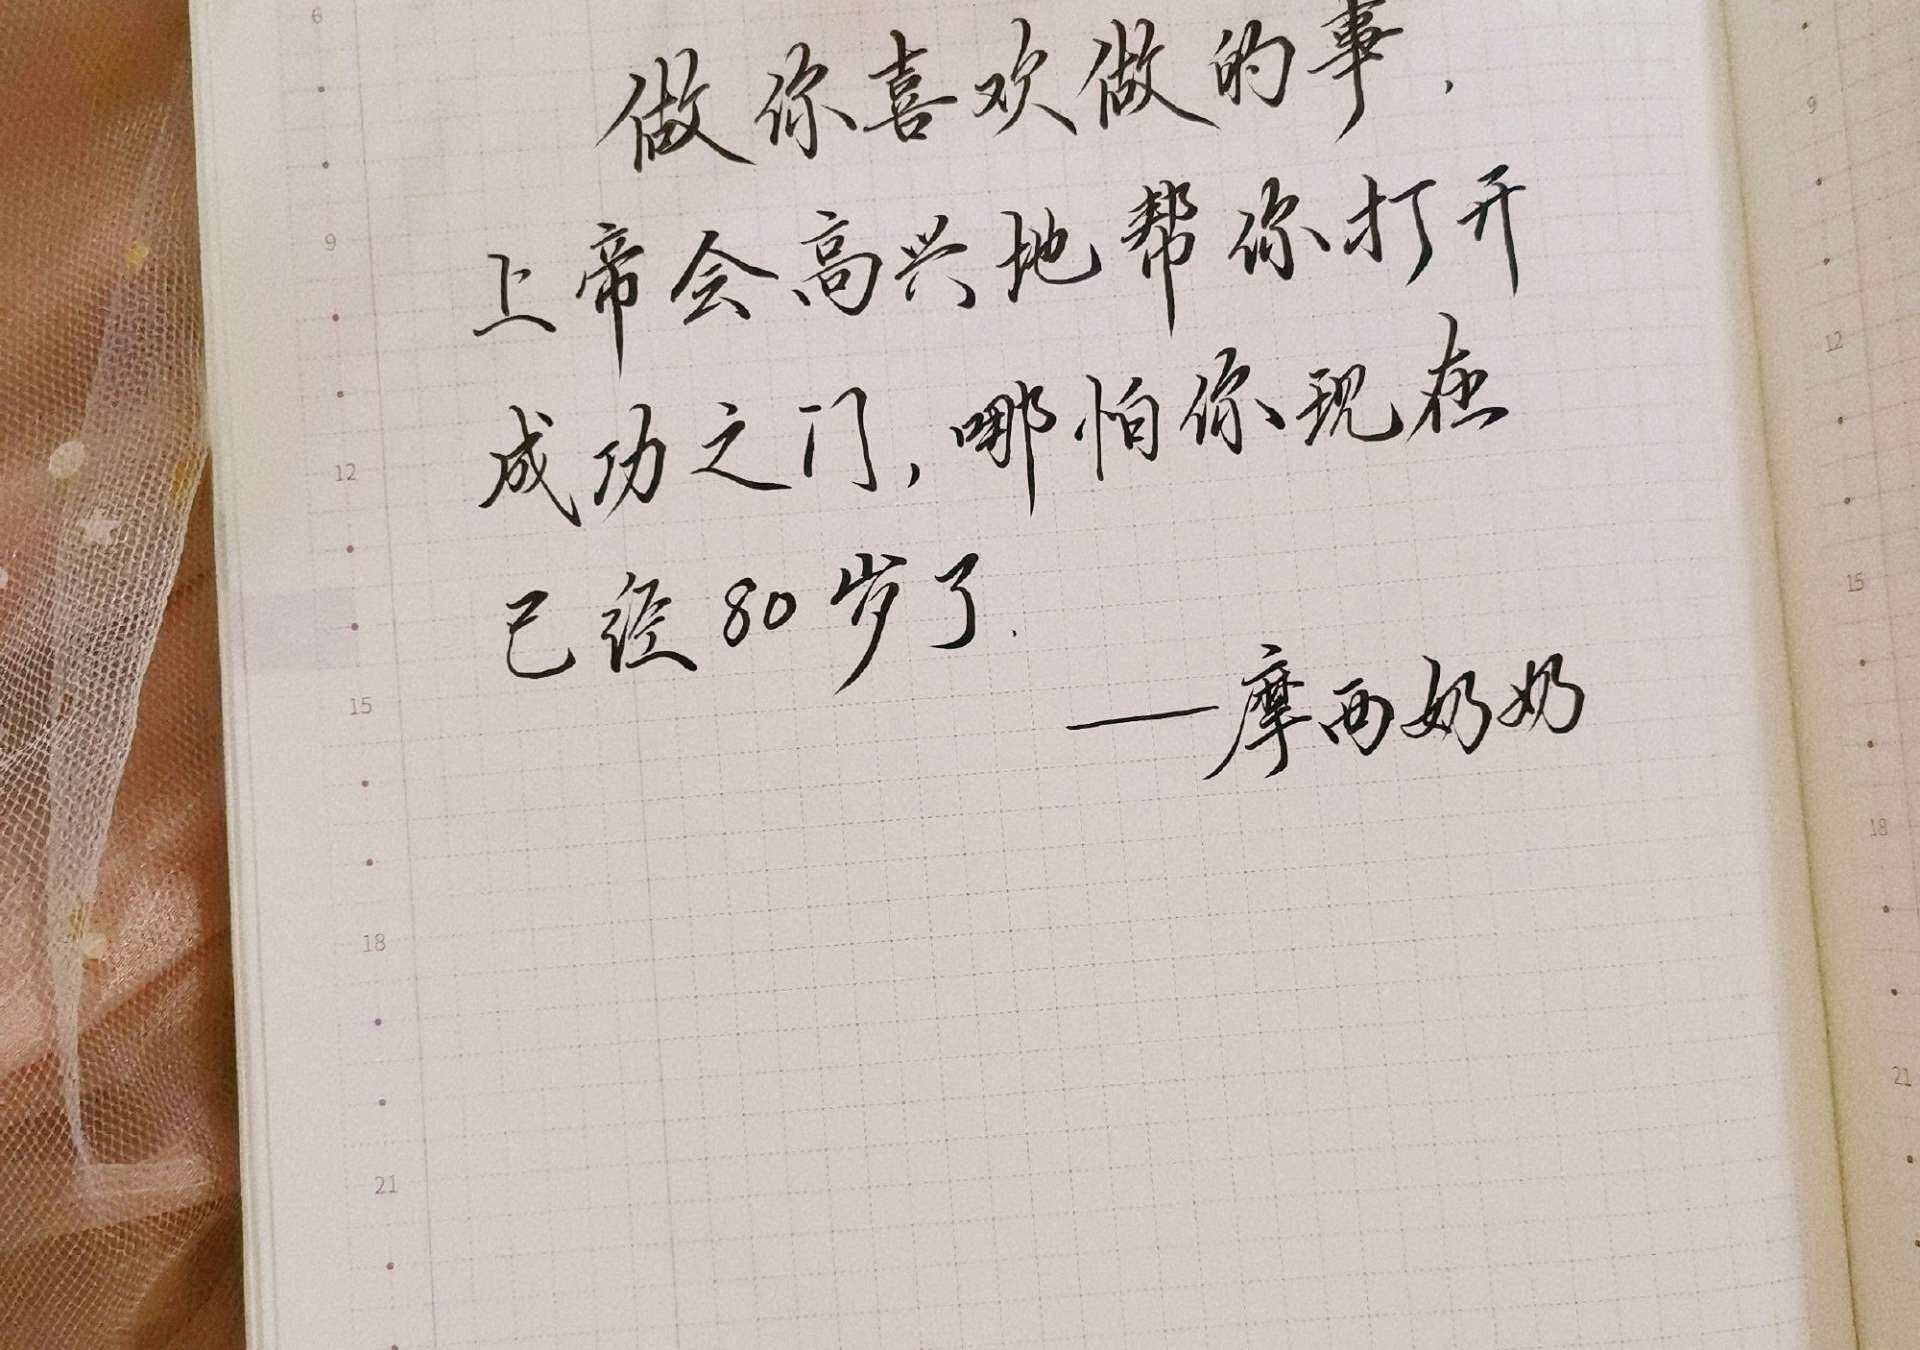 做你喜欢做的事，
上帝会高兴地帮你打开
成功之门，哪怕你现在
已经80岁了.
——摩西奶奶
6
9
12
15
18
21
9
12
15
18
21